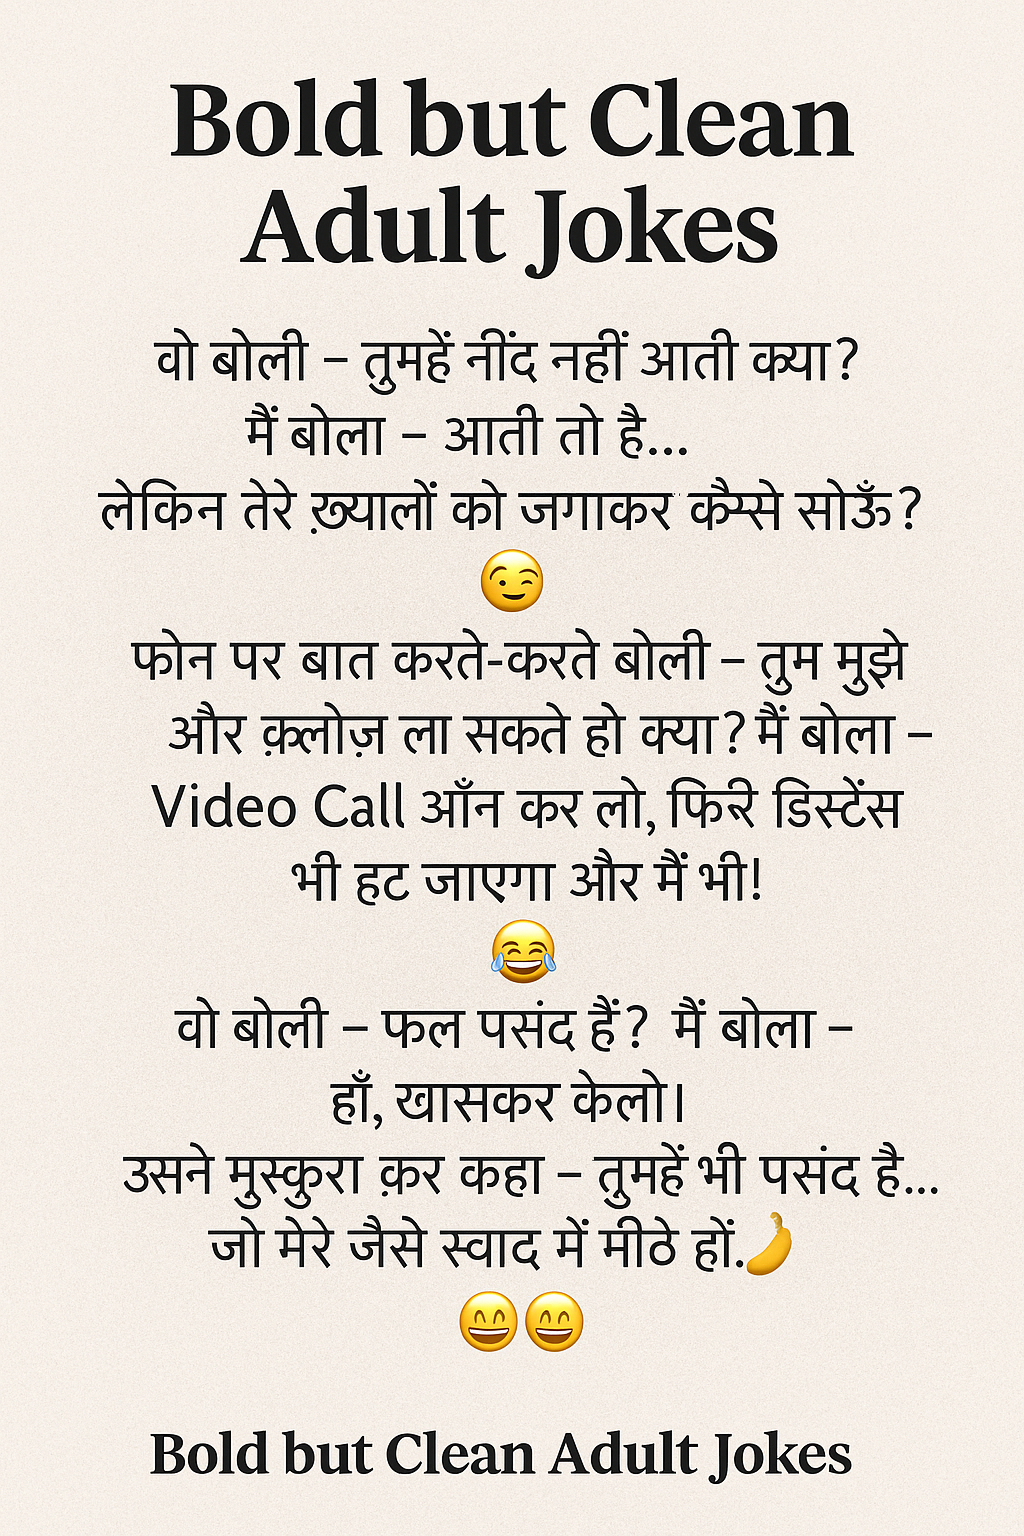 Bold but Clean
Adult Jokes
वो बोली – तुमहें नींद नहीं आती क्या?
मैं बोला – आती तो है...
लेकिन तेरे ख़्यालों को जगाकर कैम्से सोऊँ?
😉
फोन पर बात करते-करते बोली – तुम मुझे
और क़्लोज़ ला सकते हो क्या? मैं बोला –
Video Call ऑंन कर लो, फिरी डिस्टेंस
भी हट जाएगा और मैं भी!
😂
वो बोली – फल पसंद हैं? मैं बोला –
हाँ, खासकर केलो।
उसने मुस्कुरा क़र कहा – तुमहें भी पसंद है...
जो मेरे जैसे स्वाद में मीठे हों.🍌
😄😄
Bold but Clean Adult Jokes